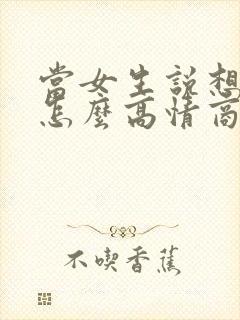 當女生說想
怎麼高情商
不喫香蕉